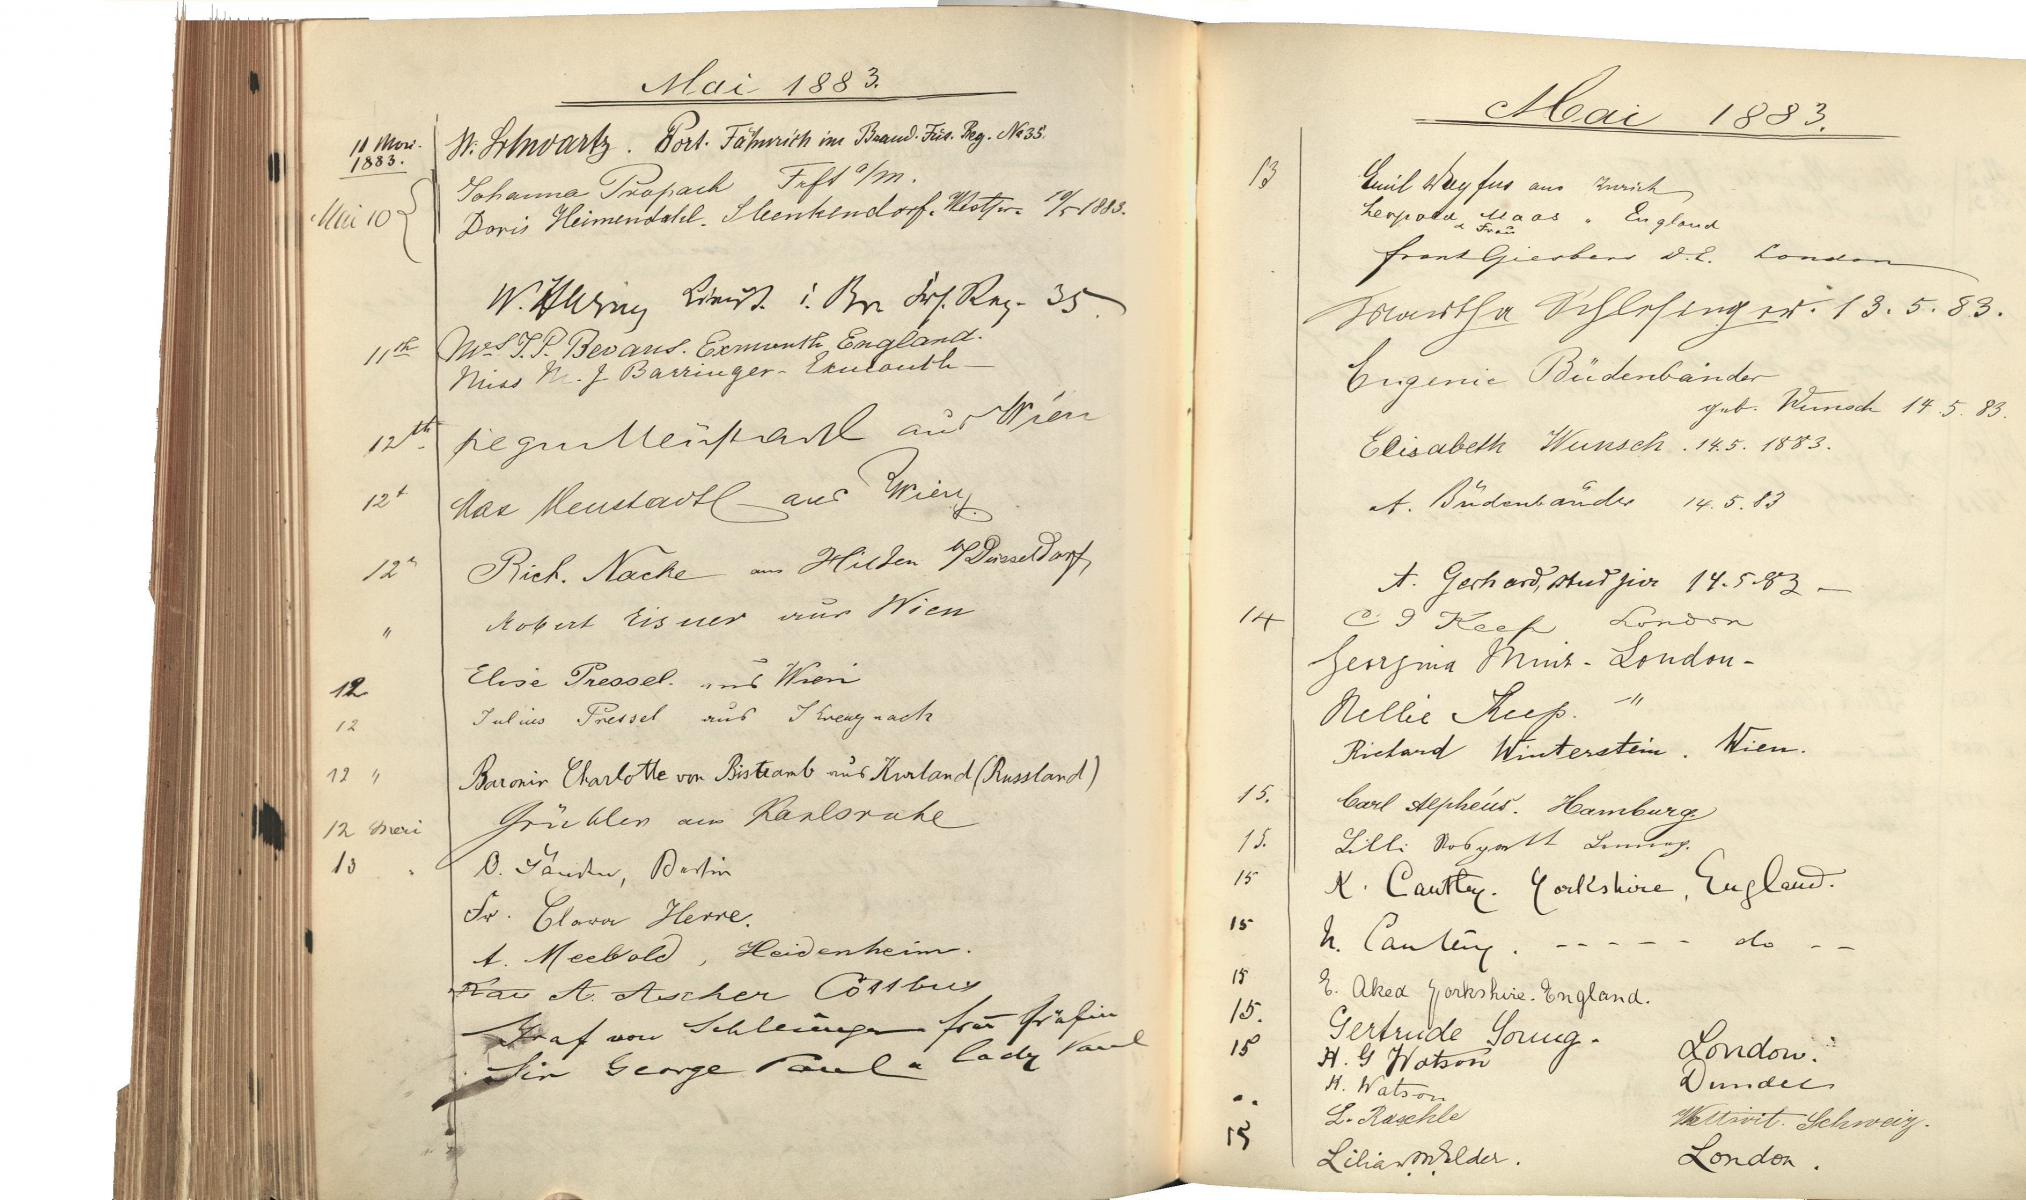 Mai 1883.
1883. W. Schwartz. Port. Fähnrich im Brand. Füs. Reg. No 35.
Johanna Propach Frft a/M.
Mai 10
Doris Heimendahl. Westf. 10/5 1883.
W. i. Reg. 35.
11th Mrs T. P. Bevans. Exmouth England.
Miss M. J Barringer - Exmouth -
12th. Neustadtl aus Wien
12t Max Neustadtl aus Wien
12 Rich. Nacke aus Hilden b/Düsseldorf
" Robert Eisner aus Wien
12 Elise Pressel. aus Wien
12 Julius Pressel aus Kreuznach
12 " Baronin Charlotte von Bistramb aus Kurland (Russland)
12 Grübler aus Karlsruhe
13 O. Berlin
Fr. Clara Herre.
A. Meebold, Heidenheim.
A. Ascher Cottbus
Graf von Gräfin
Sir George Paul u Lady Paul
Mai 1883.
13 Emil aus Zürich
Leopold Maas " England
& Frau
London
Martha Schlesinger. 13.5.83.
Eugenie Büdenbänder
geb. Wunsch 14.5.83.
Elisabeth Wunsch. 14.5.1883.
A. Büdenbänder 14.5.83
A. Gerhard, stud jur 14.5.83 —
14 C J Keep London
Georgina - London -
Nellie Keep. "
Richard Winterstein. Wien.
15. Carl Alpheus. Hamburg.
15. Lilli
15 K. Cautley. Yorkshire, England.
15 N. Cautley. - - - - - do - -
15 E. Aked Yorkshire. England.
15. Gertrude London.
15 H. G Watson
H. Watson Dundee
L. Raschle Schweiz.
15 Lilian Elder. London.